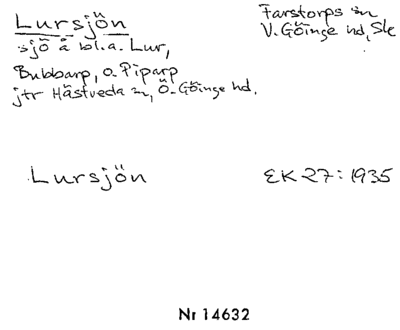 Lursjön
Farstorps sn
V. Göinge hd, Sk
sjö å bl.a. Lur,
Bubbarp, o. Piparp
jtr Hästveda sn, Ö. Göinge hd.
Lursjön
EK 27: 1935
Nr 14632